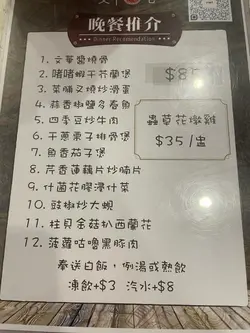 晚餐推介
Dinner Recommendation
1. 文華醬燒骨
2. 啫啫蝦干芥蘭煲
3. 菜脯叉燒炒滑蛋
4. 蒜香椒鹽多春魚
5. 四季豆炒牛肉
6. 干蔥栗子排骨煲
7. 魚香茄子煲
8. 芹香蓮藕片炒腩片
9. 什菌花膠滑什菜
10. 豉椒炒大蜆
11. 柱貝金菇扒西蘭花
12. 菠蘿咕嚕黑豚肉
蟲草花燉雞
$35/盅
奉送白飯，例湯或熱飲
凍飲+$3 汽水+$8